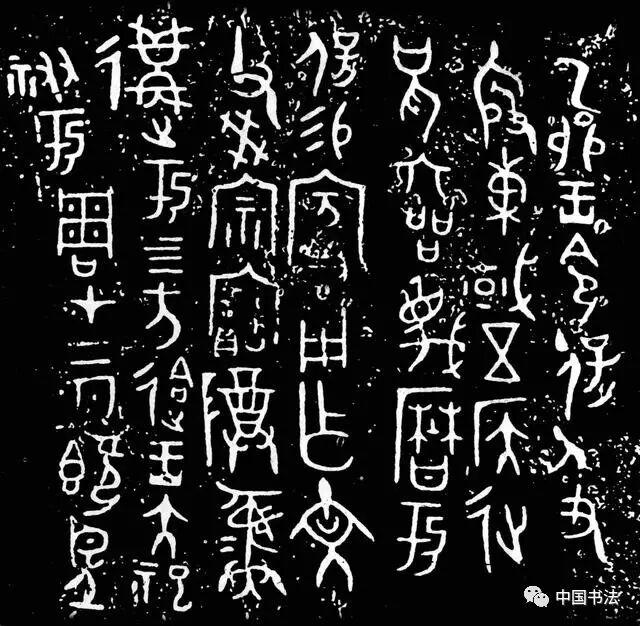 乙卯王令保及
殷東或五侯征
兄六品蔑曆于
保易賓用乍文
父癸宗寶尊彝
遘于四方會王大祀
祓于周才二月既望
中国书法